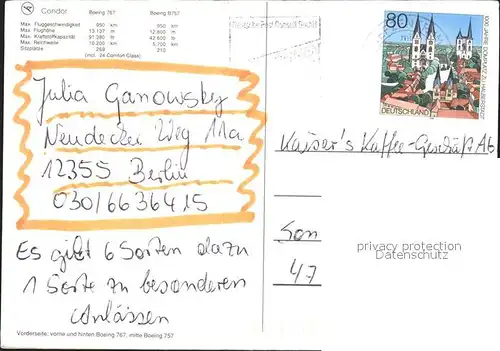 Condor
Boeing 767 Boeing B757
Max. Fluggeschwindigkeit 950 km 950 km
Max. Flughöhe 13.137 m 12.800 m
Max. Kraftstoffkapazität 91.380 ltr 42.600 ltr
Max. Reichweite 10.200 km 5.700 km
Sitzplätze 269 210
(incl. 24 Comfort Class)
80
1000 JAHRE DOMPLATZ ZU HALBERSTADT
DEUTSCHLAND
Julia Ganowsky
Neudecker Weg 11a
12355 Berlin
030/6636415
Kaiser's Kaffee-Geschäft AG
Es gibt 6 Sorten dazu
1 Sorte zu besonderen
Anlässen
Son
47
privacy protection
Datenschutz
Vorderseite: vorne und hinten Boeing 767, mitte Boeing 757